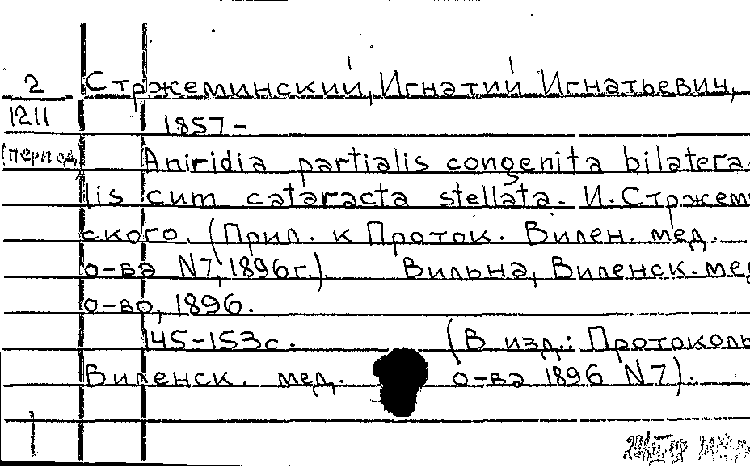 2 Стржеминский, Игнатий Игнатьевич,
1211 1857-
(период Aniridia partialis congenita bilatera-
lis cum cataracta stellata. И. Стржем
ского. (Прил. к Проток. Вилен. мед.
о-ва N7, 1896г.) Вильна, Виленск. мед
о-во, 1896.
145-153с. (В изд.: Протоколы
Виленск. мед. о-ва 1896 N7).